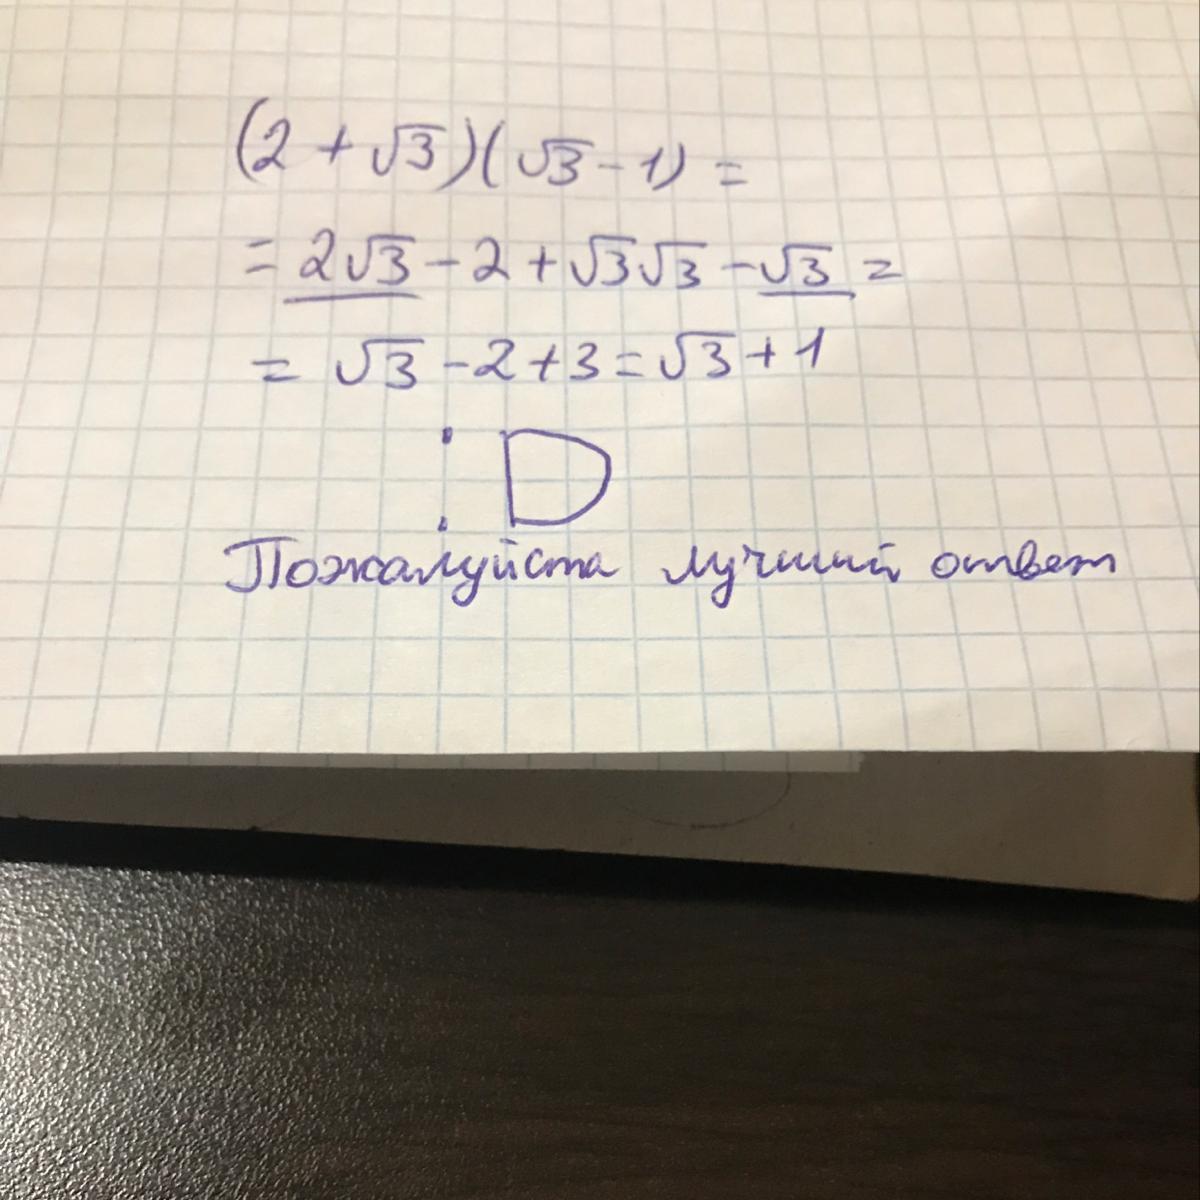 (2 + √3)(√3 - 1) =
= 2√3 - 2 + √3√3 - √3 =
= √3 - 2 + 3 = √3 + 1
:D
Пожалуйста лучший ответ